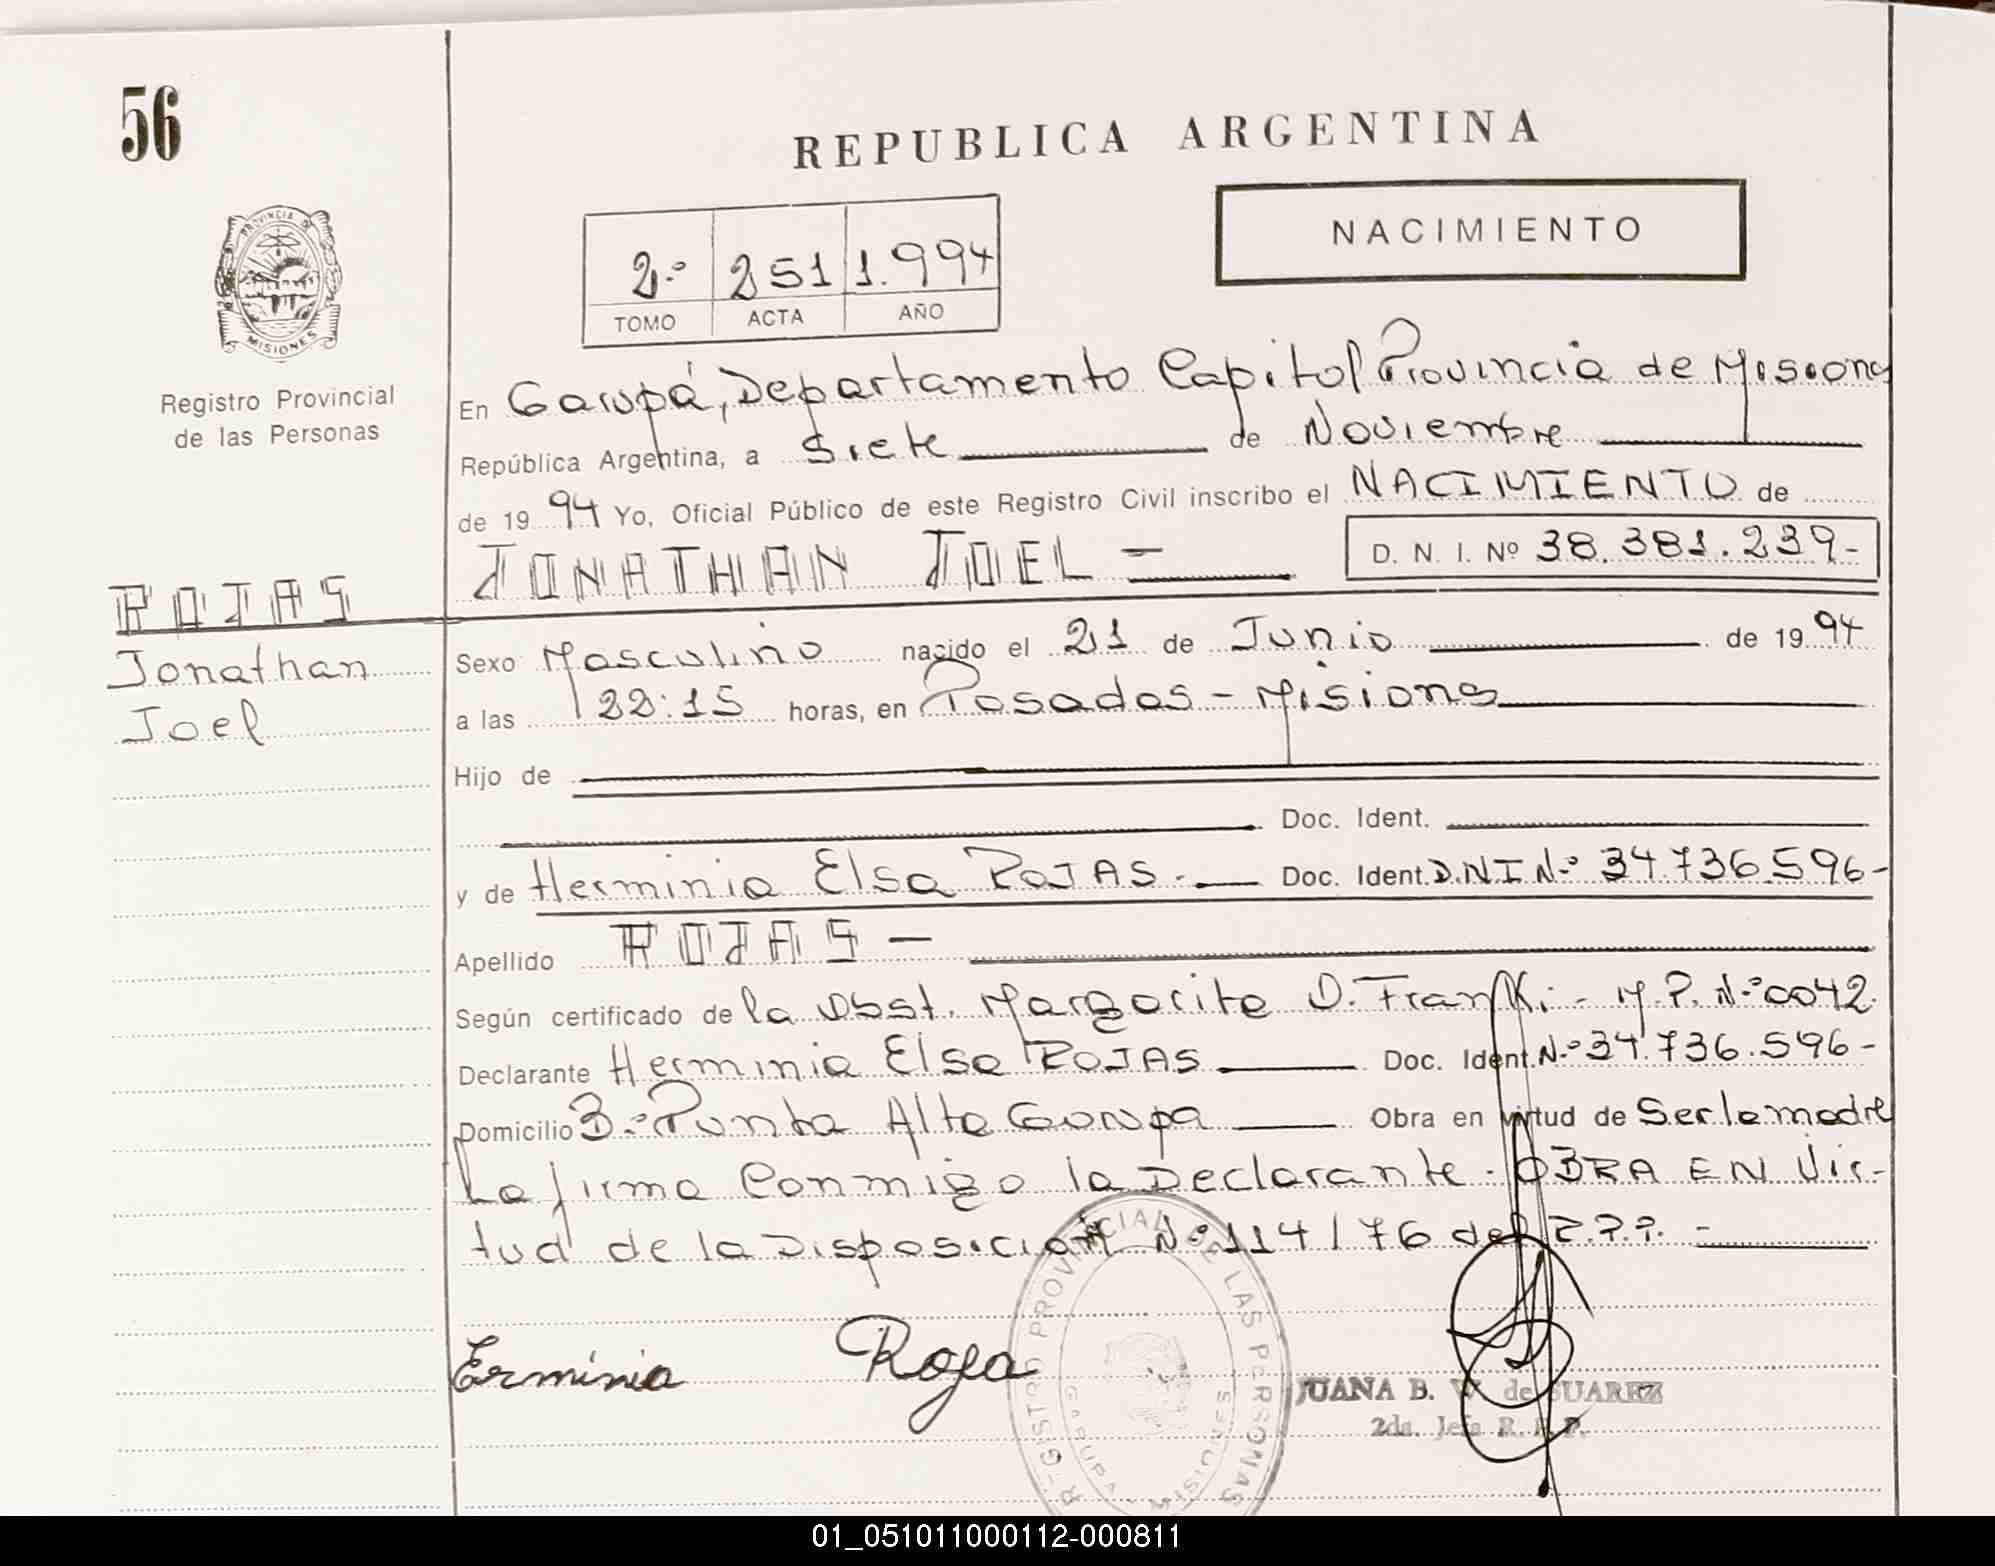 56
REPUBLICA ARGENTINA
NACIMIENTO
2º 251 1.994
TOMO ACTA AÑO
PROVINCIA DE
MISIONES
Registro Provincial
de las Personas
En Garupá, Departamento Capital Provincia de Misiones
República Argentina, a Siete de Noviembre
de 19 94 Yo, Oficial Público de este Registro Civil inscribo el NACIMIENTO de
JONATHAN JOEL - D. N. I. Nº 38.381.239-
ROJAS
Jonathan
Joel
Sexo Masculino nacido el 21 de Junio de 19 94
a las 22:15 horas, en Posadas - Misiones
Hijo de
Doc. Ident.
y de Herminia Elsa ROJAS.- Doc. Ident. D.N.I Nº 34.736.596-
Apellido ROJAS -
Según certificado de la Obst. Margarita D. Franki - M.P. Nº 0042
Declarante Herminia Elsa ROJAS Doc. Ident. Nº 34.736.596-
Domicilio Bº Punta Alta Garupa Obra en virtud de Ser la madre
La firma Conmigo la Declarante. OBRA EN Vir-
tud de la Disposicion Nº 114/76 del R.P.P.
Erminia Roja
REGISTRO PROVINCIAL DE LAS PERSONAS
GARUPA - MISIONES
JUANA B. V. de SUAREZ
2da. Jefa R. P. P.
01_051011000112-000811